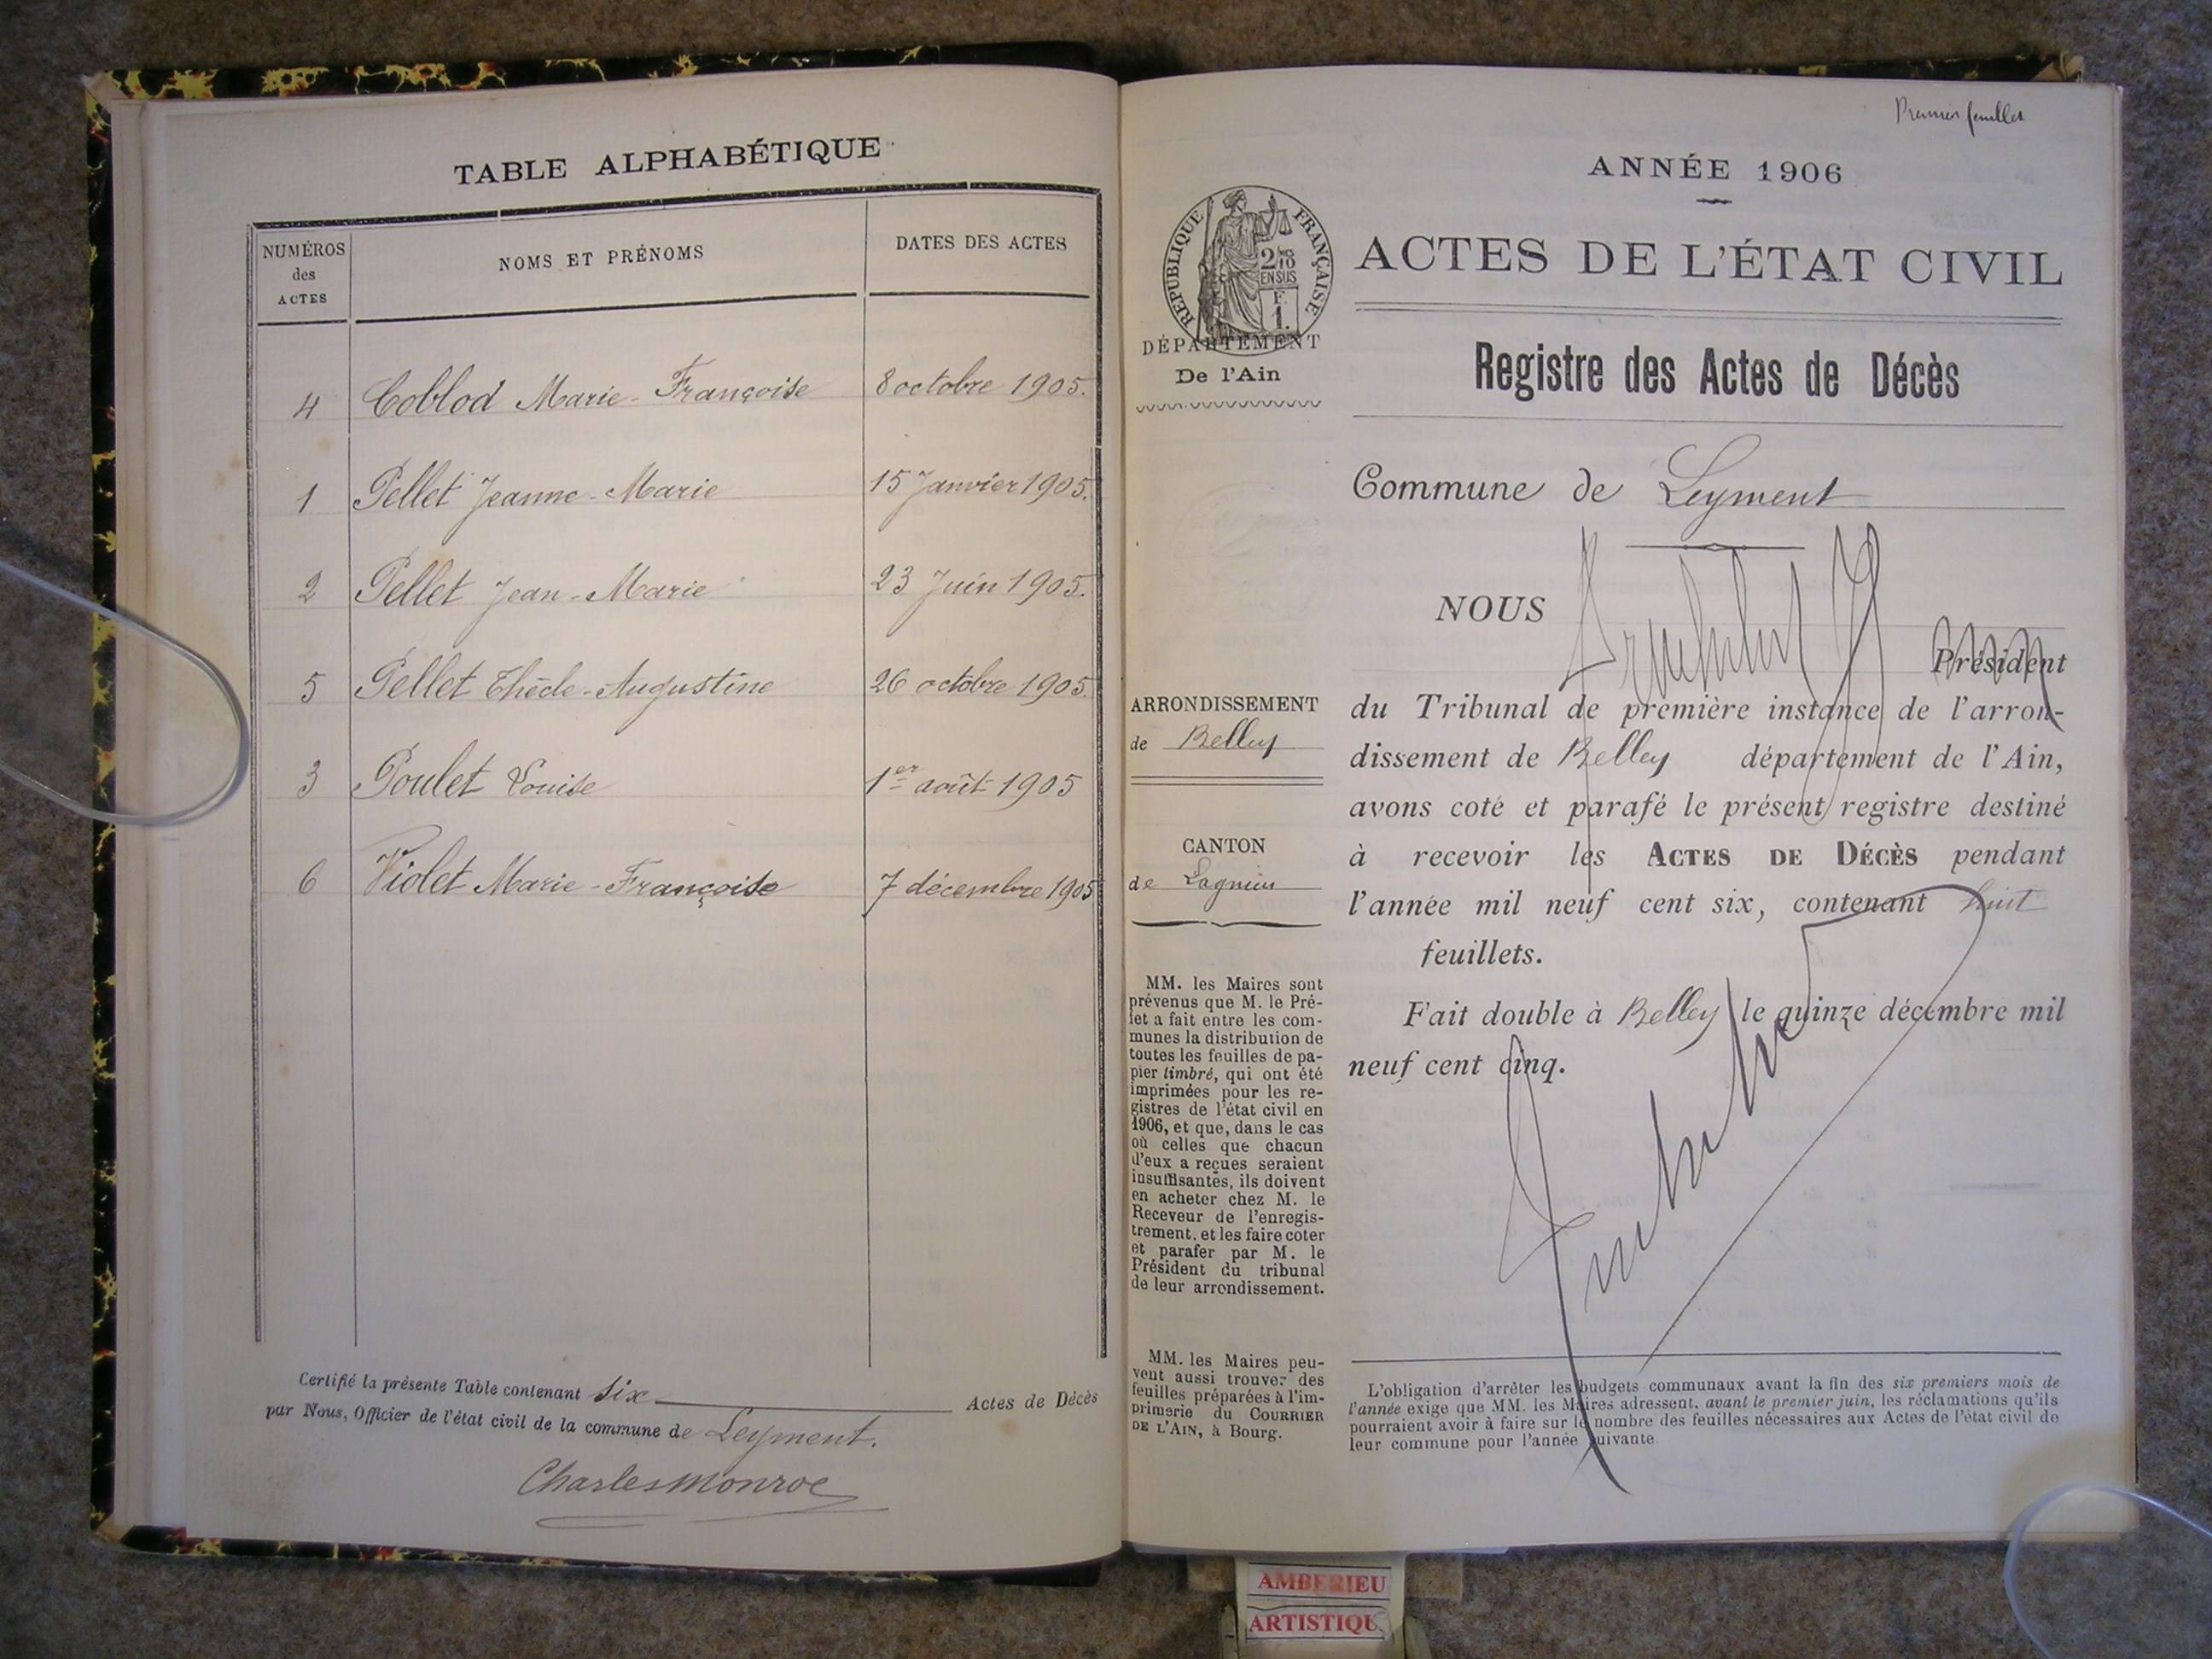 TABLE ALPHABÉTIQUE
NUMÉROS des ACTES
NOMS ET PRÉNOMS
DATES DES ACTES
4 Coblod Marie-Françoise 8 octobre 1905.
1 Pellet Jeanne-Marie 15 Janvier 1905.
2 Pellet Jean-Marie 23 Juin 1905.
5 Pellet Thècle-Augustine 26 octobre 1905.
3 Poulet Louise 1er août 1905
6 Violet Marie-Françoise 7 décembre 1905
Certifié la présente Table contenant six Actes de Décès
par Nous, Officier de l'état civil de la commune de Leyment.
Charles Monroe
Premier feuillet
ANNÉE 1906
RÉPUBLIQUE FRANÇAISE
2/10 EN SUS
F. 1.
DÉPARTEMENT
De l'Ain
ACTES DE L'ÉTAT CIVIL
Registre des Actes de Décès
Commune de Leyment
NOUS
Président
du Tribunal de première instance de l'arron-
dissement de Belley département de l'Ain,
avons coté et parafé le présent registre destiné
à recevoir les ACTES DE DÉCÈS pendant
l'année mil neuf cent six, contenant huit
feuillets.
Fait double à Belley le quinze décembre mil
neuf cent cinq.
ARRONDISSEMENT
de Belley
CANTON
de Lagnieu
MM. les Maires sont
prévenus que M. le Pré-
fet a fait entre les com-
munes la distribution de
toutes les feuilles de pa-
pier timbré, qui ont été
imprimées pour les re-
gistres de l'état civil en
1906, et que, dans le cas
où celles que chacun
d'eux a reçues seraient
insuffisantes, ils doivent
en acheter chez M. le
Receveur de l'enregis-
trement, et les faire coter
et parafer par M. le
Président du tribunal
de leur arrondissement.
MM. les Maires peu-
vent aussi trouver des
feuilles préparées à l'im-
primerie du COURRIER
DE L'AIN, à Bourg.
L'obligation d'arrêter les budgets communaux avant la fin des six premiers mois de
l'année exige que MM. les Maires adressent, avant le premier juin, les réclamations qu'ils
pourraient avoir à faire sur le nombre des feuilles nécessaires aux Actes de l'état civil de
leur commune pour l'année suivante
AMBERIEU
ARTISTIQU